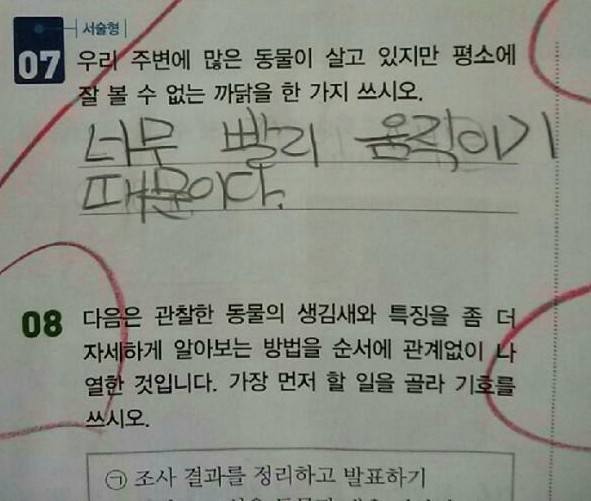 서술형
07 우리 주변에 많은 동물이 살고 있지만 평소에
잘 볼 수 없는 까닭을 한 가지 쓰시오.
너무 빨리 움직이기
때문이다.
08 다음은 관찰한 동물의 생김새와 특징을 좀 더
자세하게 알아보는 방법을 순서에 관계없이 나
열한 것입니다. 가장 먼저 할 일을 골라 기호를
쓰시오.
㉠ 조사 결과를 정리하고 발표하기